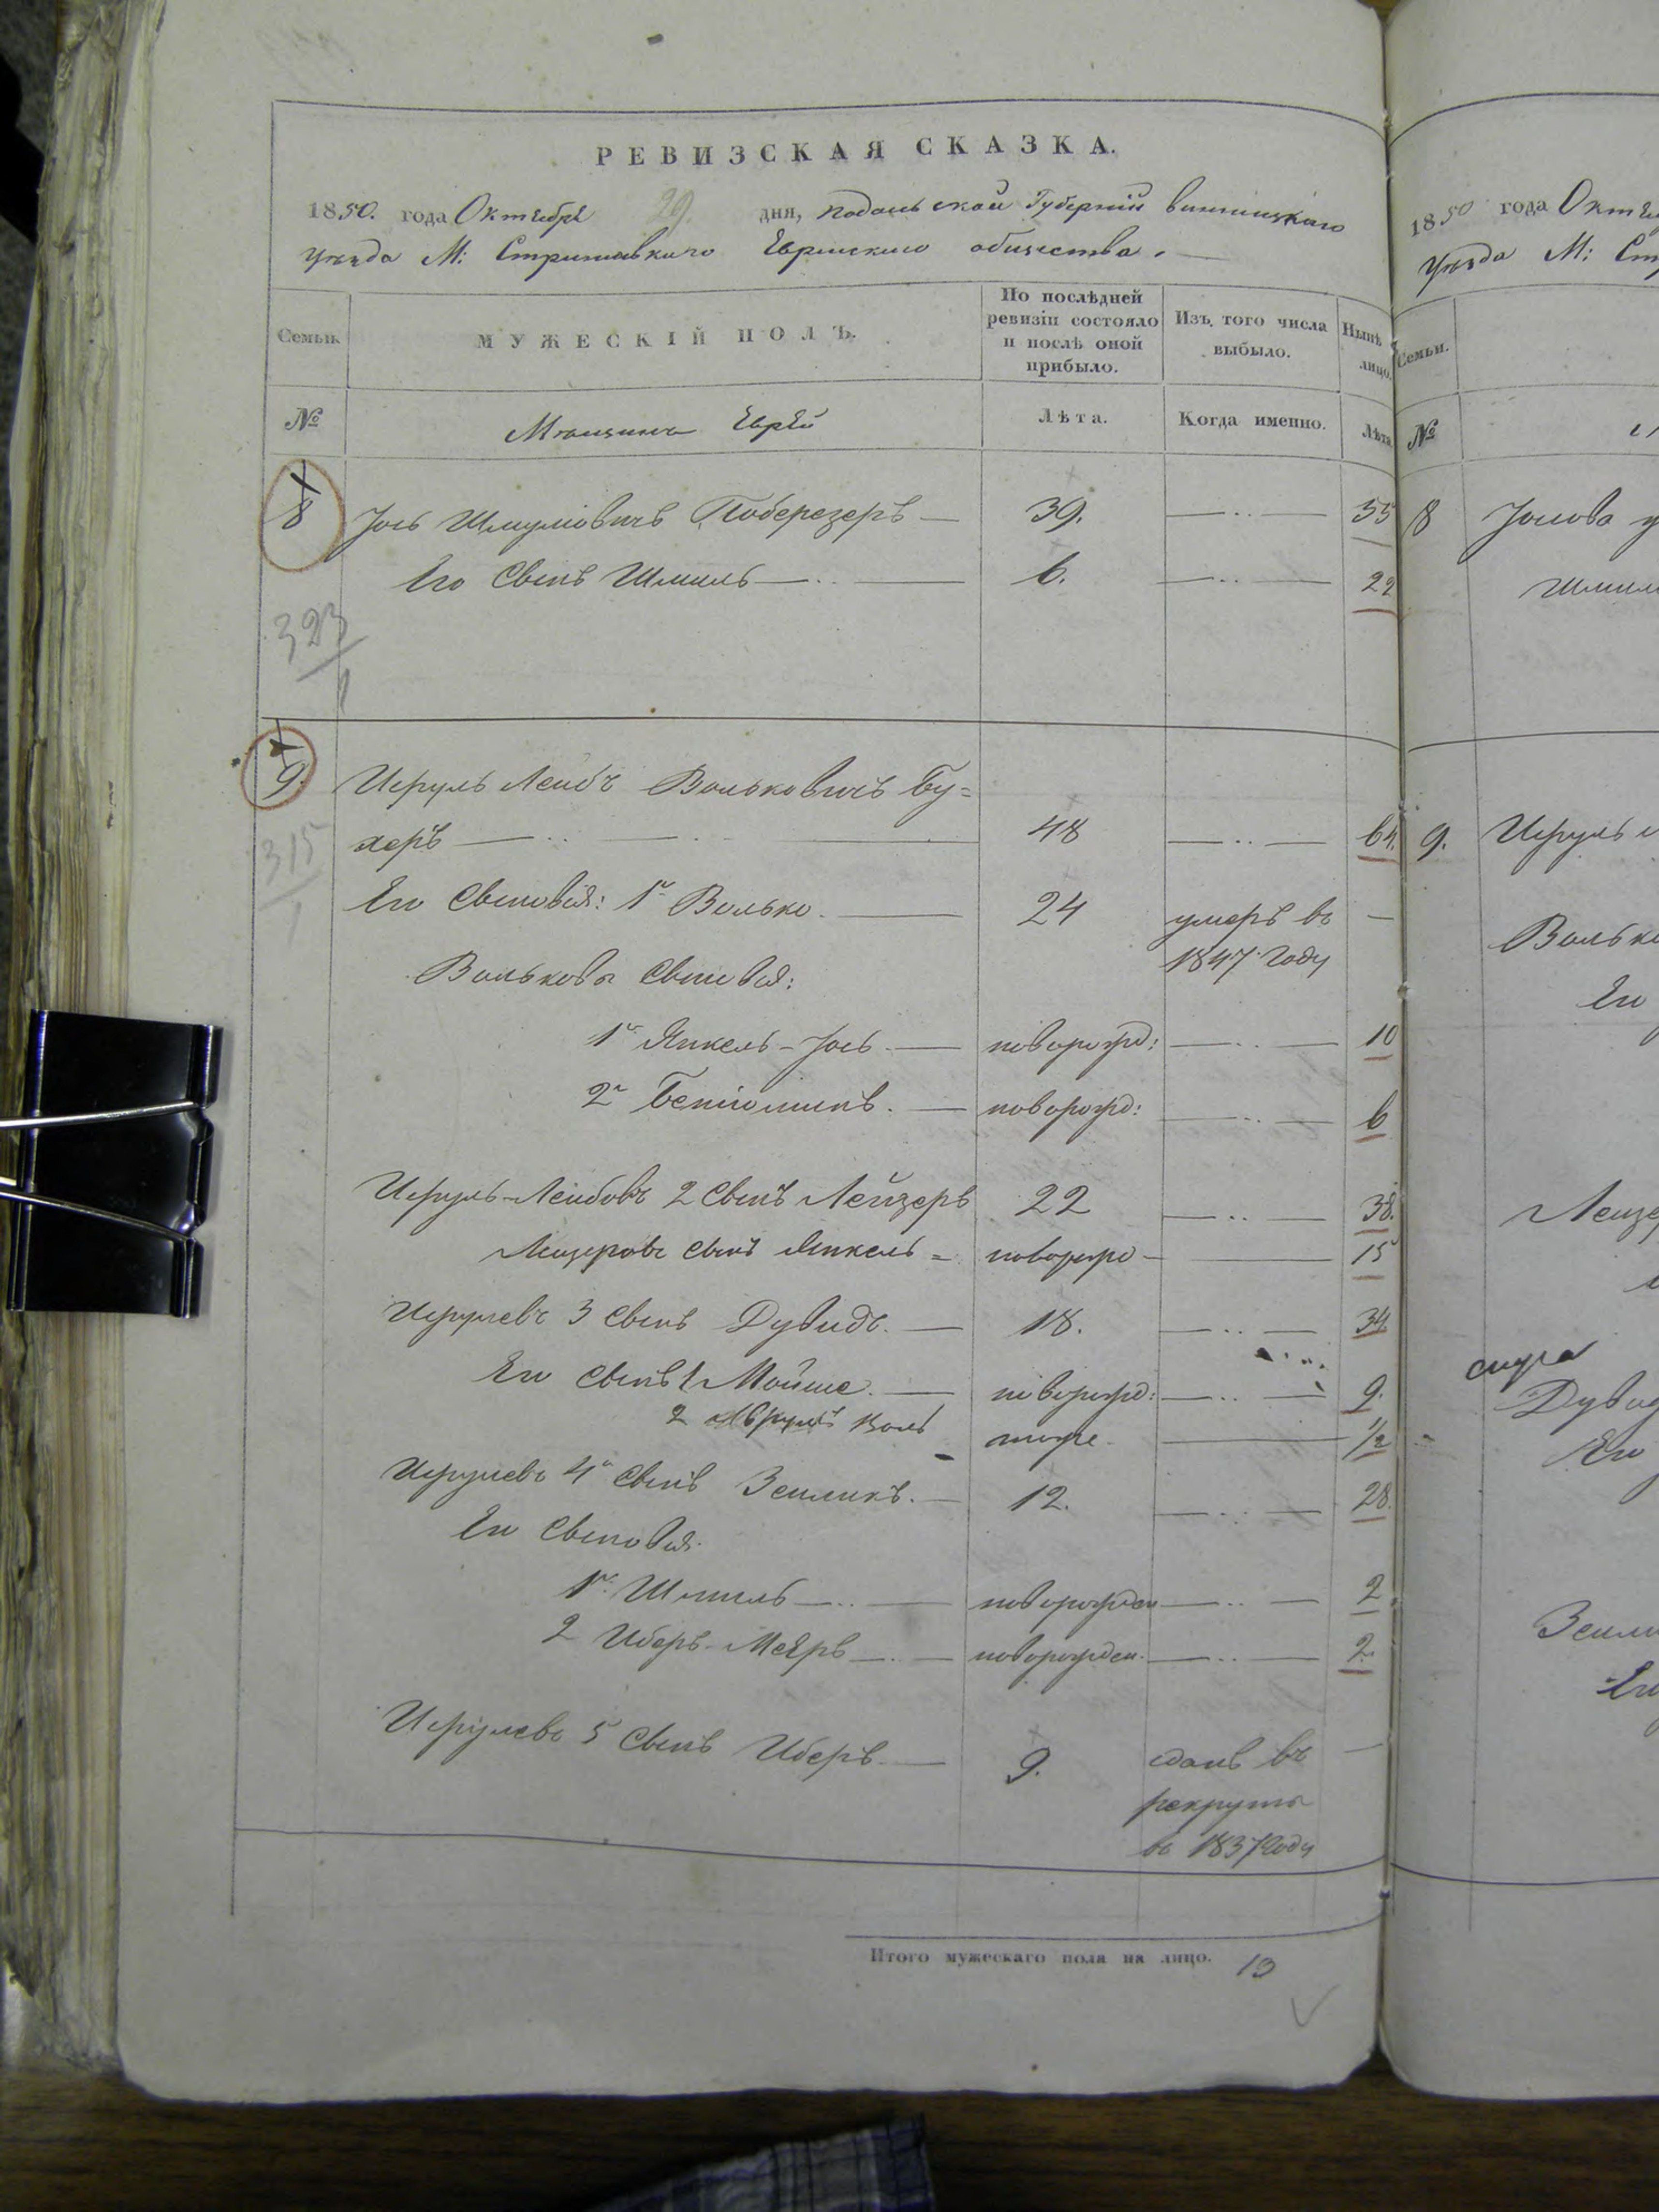 РЕВИЗСКАЯ СКАЗКА.
1850. года Октября 29. дня, Подольской Губерніи Винницкаго
уѣзда М: Стрижавкаго Еврейскаго общества.
Семьи.
МУЖЕСКІЙ ПОЛЪ.
По послѣдней ревизіи состояло и послѣ оной прибыло.
Изъ того числа выбыло.
Нынѣ лицо.
№
Мѣщане Евреи
Лѣта.
Когда именно.
Лѣта
8 Іось Шмулiовичъ Поберезеръ — 39. —..— 55
Его Сынъ Шмиль —..— 6. —..— 22
323
1
9. Исруль Лейбъ Вольковичъ Бу=
херъ —..— 48 —..— 64.
Его Сыновья: 1й Волько. — 24 умеръ въ —
1847 году
Волькова Сыновья:
1й Янкель-Іось — новорожд: —..— 10
2й Бенiоминъ. — новорожд: —..— 6
315
1
Исруль-Лейбовъ 2 Сынъ Лейзеръ 22 —..— 38.
Лейзеровъ Сынъ Янкель = новорожд — — 15
Исрулевъ 3 Сынъ Дувидъ. — 18. —..— 34
Его Сынъ 1 Мойше. — новорожд: —..— 9.
2 Аврумъ Воль тоже — 1/2
Исрулевъ 4й Сынъ Зейликъ. — 12. —..— 28.
Его Сыновья:
1й Шмиль —..— новорожден —..— 2
2 Иберъ-Мееръ —..— новорожден. —..— 2.
Исрулевъ 5 Сынъ Иберъ — 9. сданъ въ —
рекруты
въ 1837 году
Итого мужескаго пола на лицо. 13
1850 года
уѣзда М:
Семьи.
№
8 Іосова
9. Исруль
Его
Дувид
Его